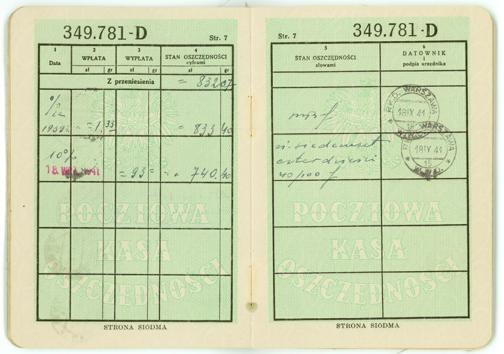 349.781-D
Str. 7
1
Data
2
WPŁATA
zł gr
3
WYPŁATA
zł gr
4
STAN OSZCZĘDNOŚCI
cyframi
zł gr
Z przeniesienia
= 832 07
%
1939 = 1.33 = 833.40
10%
= 93 = 740.40
POCZTOWA
KASA
OSZCZĘDNOŚCI
STRONA SIÓDMA
Str. 7
349.781-D
5
STAN OSZCZĘDNOŚCI
słowami
6
DATOWNIK
i
podpis urzędnika
P.K.O. WARSZAWA
18 IX 41
15
WARSZAWA
18 IX 41
15
siedemset
czterdzieści
40/100
POCZTOWA
KASA
OSZCZĘDNOŚCI
STRONA SIÓDMA